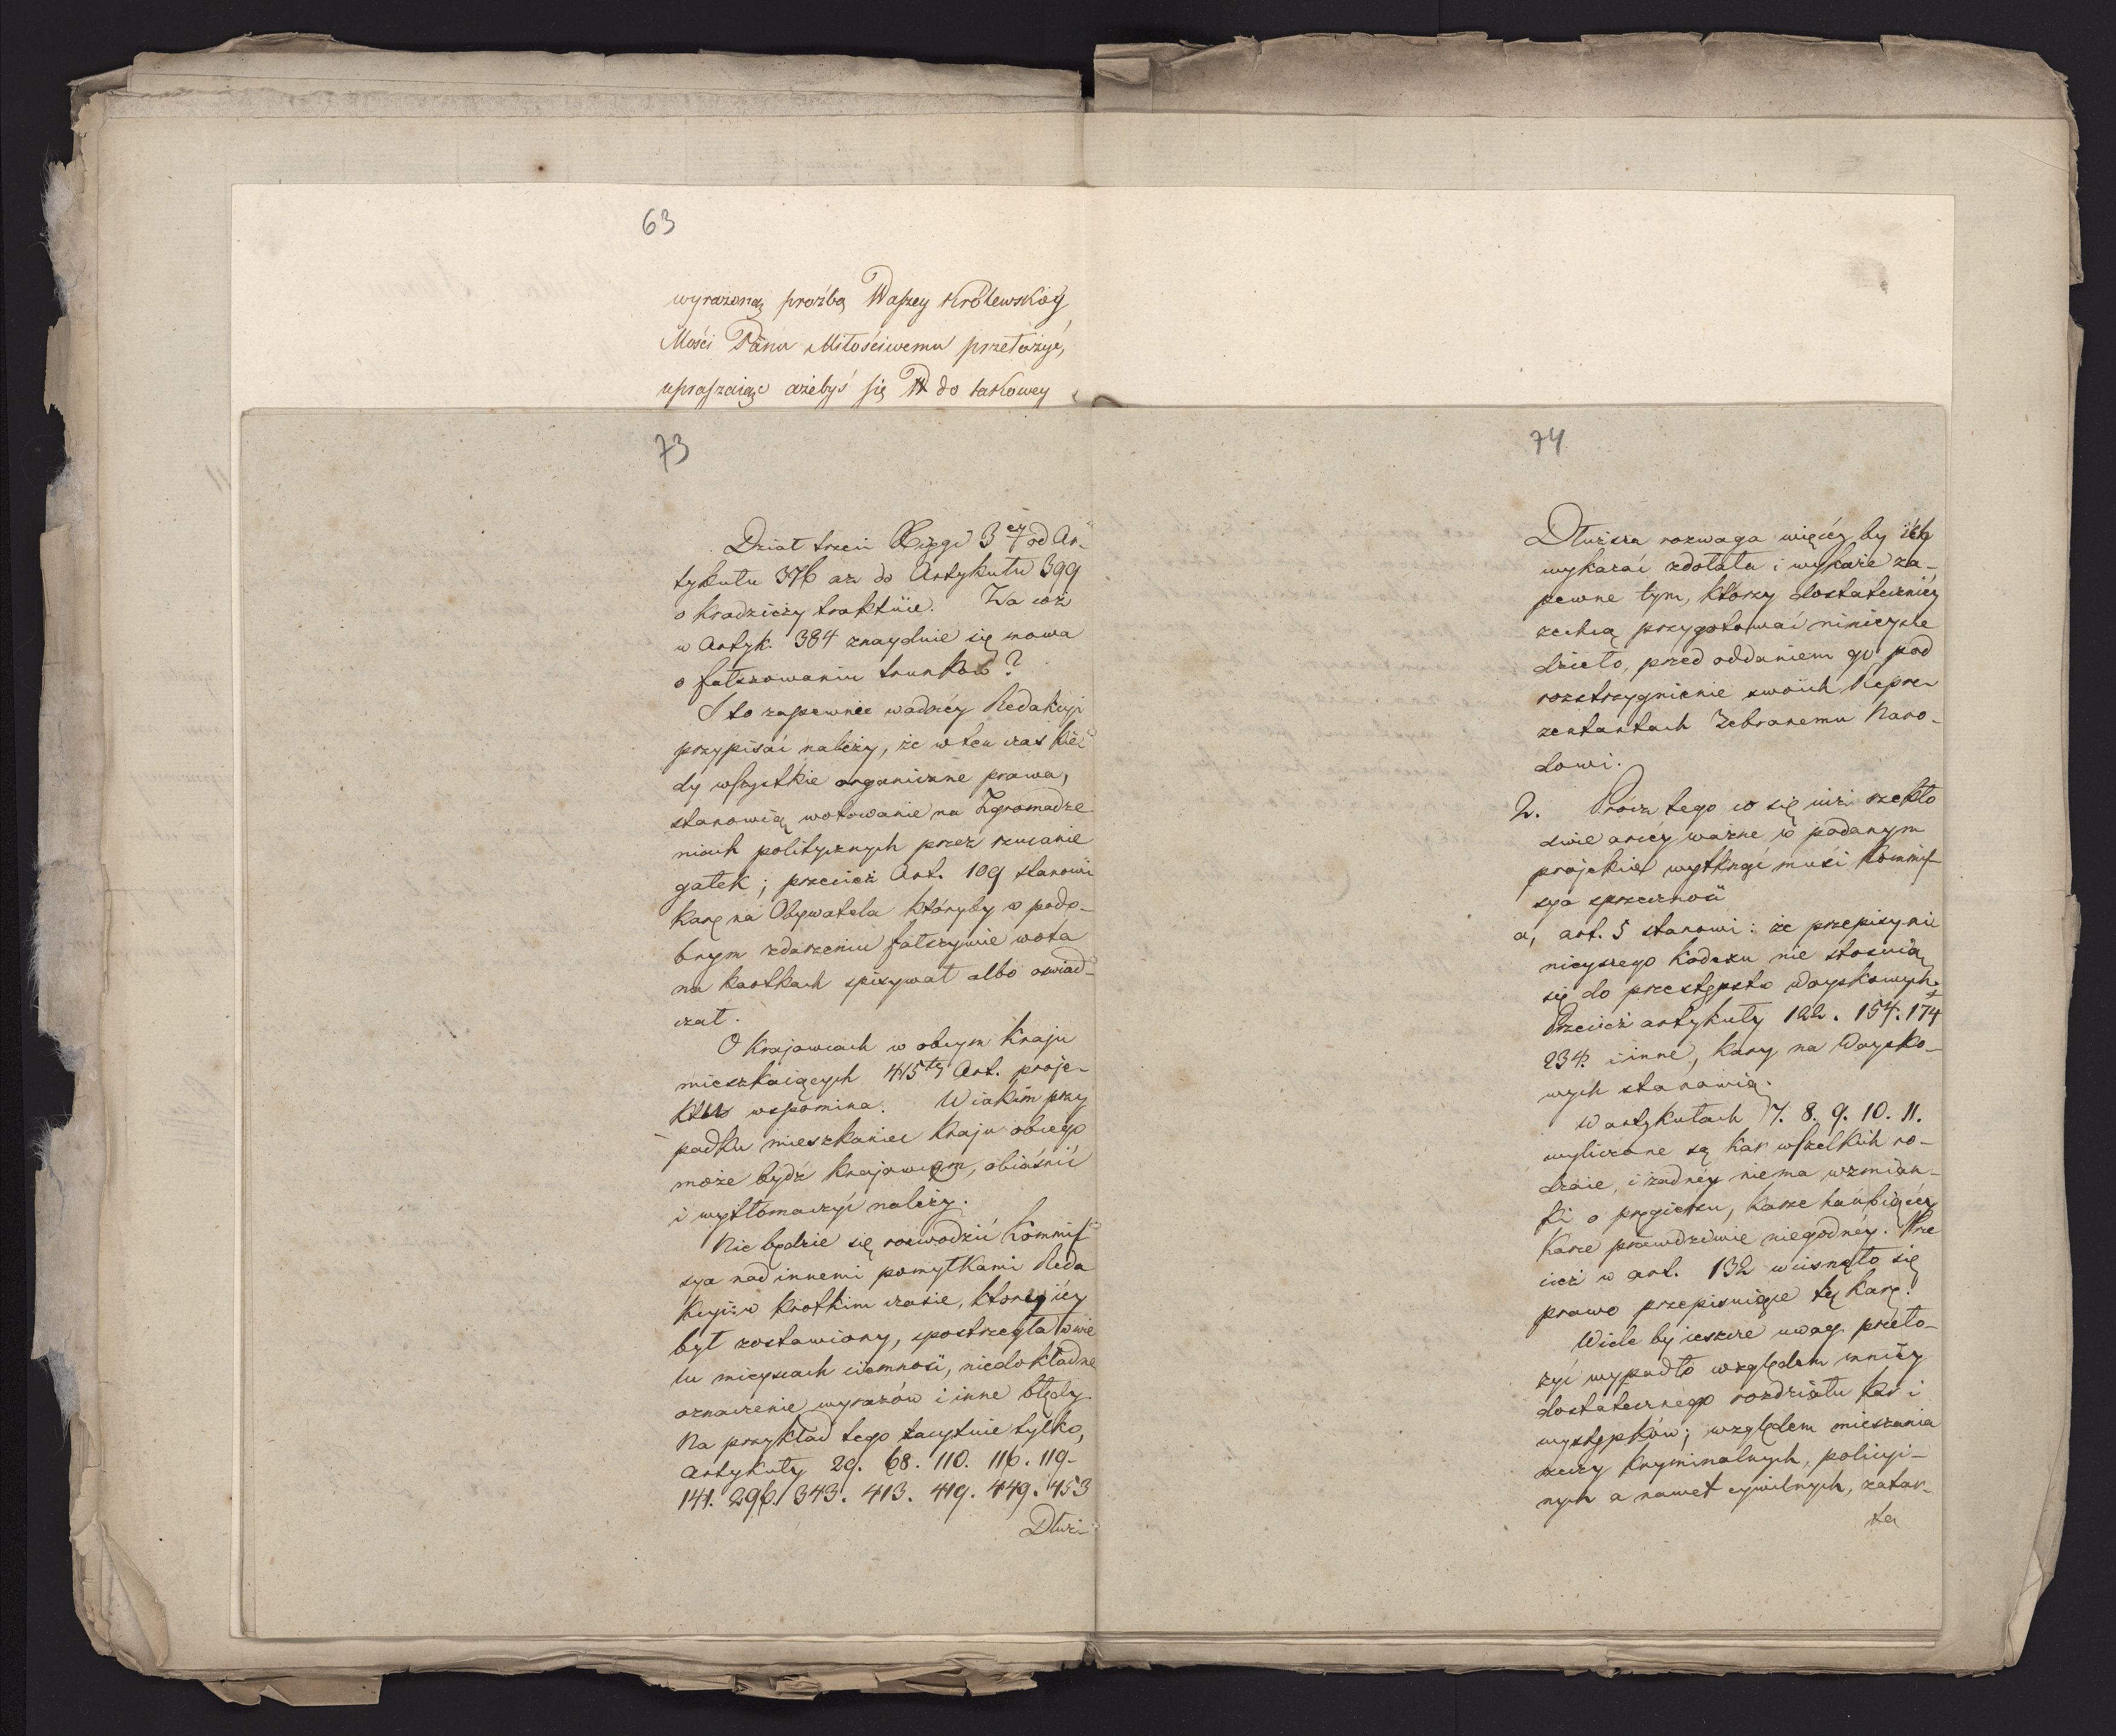 63
wyrażoną proźbą Waszey Królewskiey
Mości Panu Miłościwemu przełożyć,
upraszaiąc ażebyś się W do takowey
73
Dział trzeci Xięgi 3ey od Ar-
tykułu 376 aż do Artykułu 399
o kradzieży traktuie. Za cóż
w Artyk. 384 znayduie się mowa
o fałszowaniu trunków?
I to zapewnie wadney Redakcyi
przypisać należy, że w ten czas kie-
dy wszystkie organiczne prawa,
stanowią wotowanie na Zgromadze
niach politycznych przez rzucanie
gałek; przecież Art. 109 stanowi
karę na Obywatela któryby w podo-
bnym zdarzeniu fałszywie wota
na kartkach spisywał albo oświad-
czał.
O Krajowcach w obcym Kraju
mieszkaiących 415ty Art. proje-
ktu wspomina. W iakim przy
padku mieszkaniec kraju obcego
może bydź krajowcem, obiaśnić
i wytłomaczyć należy.
Nie będzie się rozwodzić Kommis-
sya nad innemi pomyłkami Reda
kcyi w krotkim czasie, który iey
był zostawiony, spostrzegła w wie
lu mieyscach ciemność, niedokładne
oznaczenie wyrazów i inne błędy.
Na przykład tego zacytuie tylko,
Artykuły 29. 68. 110. 116. 119.
141. 296. 343. 413. 419. 449. 453
Dłuż-
74
Dłuższa rozwaga więcéy by ich
wykazać zdołała i wykaże za-
pewne tym, którzy dostateczniéy
zechcą przygotować ninieysze
dzieło, przed oddaniem go pod
rozstrzygnienie swoich Repre-
zentantach Zebranemu Naro-
dowi.
2. Prócz tego co się iuż rzekło
dwie arcy ważne w podanym
projekcie wytknąć musi Kommis-
sya sprzeczności
a, art. 5 stanowi: że przepisy ni
nieyszego Kodexu nie stosuią
się do przestępstw Woyskowych.
Przecież artykuły 122. 154. 174
234. i inne, kary na Woysko-
wych stanowią.
W artykułach 7. 8. 9. 10. 11.
wyliczone są kar wszelkich ro-
dzaie, i żadnéy niema wzmian-
ki o pręgierzu, karze hańbiącéy
Karze prawdziwie niegodnéy. Prze
cież w art. 132 wcisnęło się
prawo przepisuiące tę karę.
Wiele by ieszcze uwag przeło-
żyć wypadło względem mniéy
dostatecznego rozdziału kar i
występków; względem mieszania
rzeczy kryminalnych, policyi-
nych a nawet cywilnych, zatar-
ta